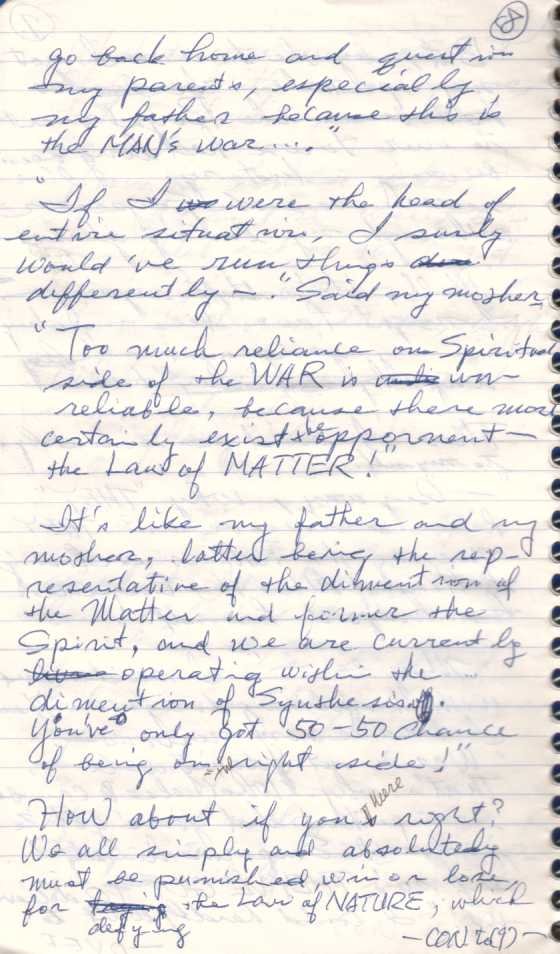 8
go back home and question
my parents, especially
my father because this is
the MAN's war...."
"If I we were the head of
entire situation, I surly
would 've run things
differently —." Said my mother
"Too much reliance on Spiritual
side of the WAR is un-
reliable, because there more
certainly exists the opponent —
the Law of MATTER!"
It's like my father and my
mother, latter being the rep-
resentative of the dimention of
the Matter and former the
Spirit, and we are currently
live operatig within the
dimention of Synthesis.
You've only got 50-50 chance
of being on the right side!"
How about if you were right?
We all simply and absolutely
must be punished, win or lose,
for defying the Law of NATURE, which
— CON to (9) —